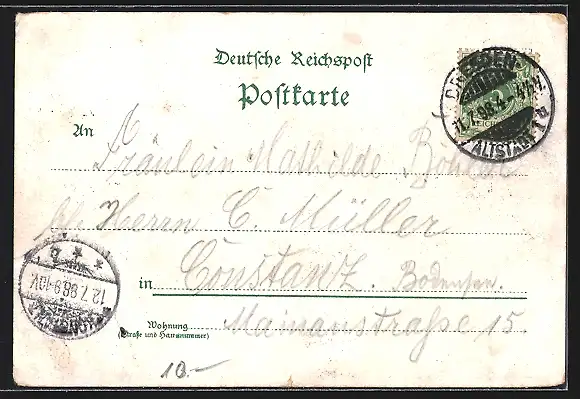 Deutsche Reichspost
Postkarte
DRESDEN
11.7.96.4-
ALTSTADT
REICHS
An
Fräulein Mathilde
bei Herrn C. Müller
in Constanz. Bodensee.
12.7.96.9-10V.
Wohnung
(Straße und Hausnummer)
Mainaustraße 15.
10.-